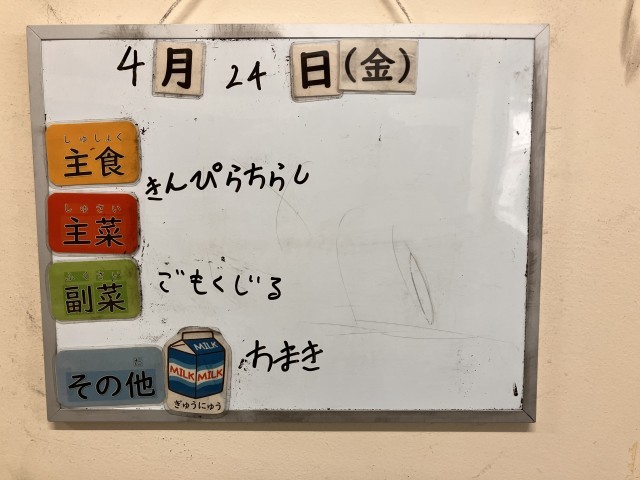 4月24日(金)
しゅしょく
主食
きんぴらちらし
しゅさい
主菜
ふくさい
副菜
ごもくじる
た
その他
MILK
MILK MILK
ぎゅうにゅう
ちまき